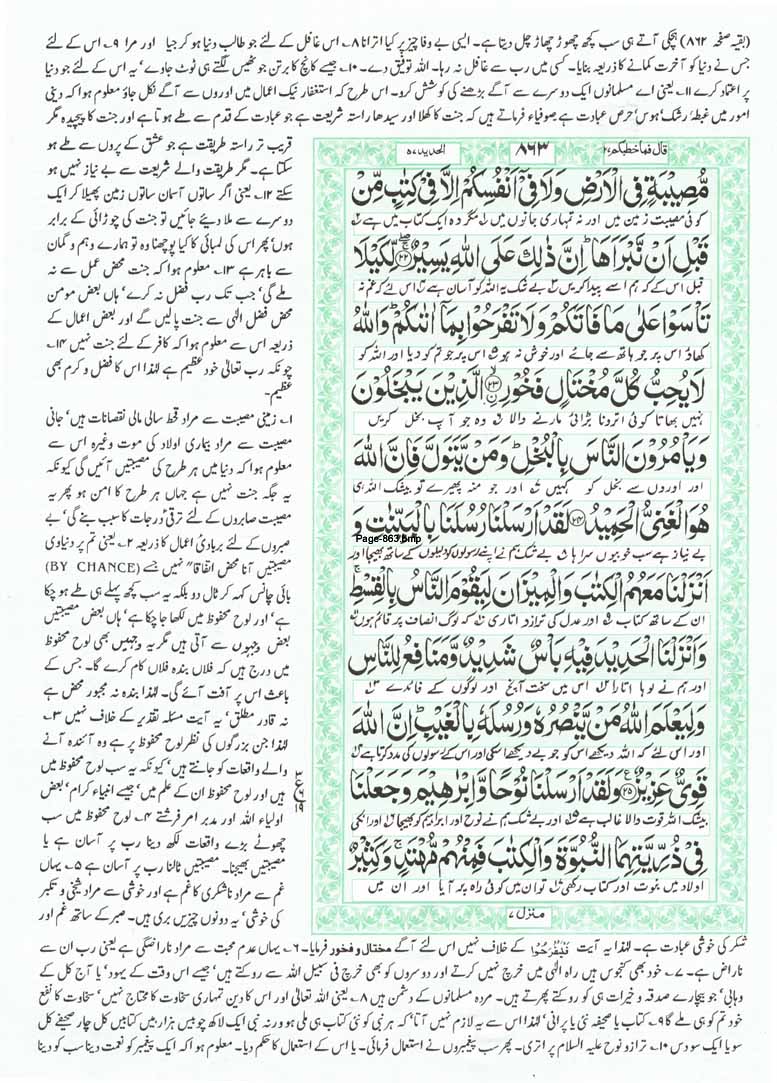 (بقیہ صفحہ ۸۶۲) ہچکی آتے ہی سب کچھ چھوڑ چھاڑ چل دیتا ہے۔ ایسی بے وفا چیز پر کیا اترانا ۸۔ اس غافل کے لئے جو طالب دنیا ہو کر جیا اور مرا ۹۔ اس کے لئے
جس نے دنیا کو آخرت کمانے کا ذریعہ بنایا۔ کسی میں رب سے غافل نہ رہا۔ اللہ توفیق دے۔ ۱۰۔ جیسے کانچ کا برتن جو ٹھیس لگتے ہی ٹوٹ جاوے' یہ اس کے لئے جو دنیا
پر اعتماد کرے ۱۱۔ یعنی اے مسلمانوں ایک دوسرے سے آگے بڑھنے کی کوشش کرو۔ اس طرح کہ استغفار نیک اعمال میں اوروں سے آگے نکل جاؤ معلوم ہوا کہ دینی
امور میں غبطہ' رشک' ہوس' حرص عبادت ہے صوفیاء فرماتے ہیں کہ جنت کا کھلا اور سیدھا راستہ شریعت ہے جو عبادت کے قدم سے طے ہوتا ہے اور جنت کا پیچیدہ مگر
قال فما خطبکم ۲۷ ۸۶۳ الحدید ۵۷
مُّصِیْبَةٍ فِی الْاَرْضِ وَلَا فِیْۤ اَنْفُسِكُمْ اِلَّا فِیْ كِتٰبٍ مِّنْ
کوئی مصیبت زمین میں اور نہ تمہاری جانوں میں مگر وہ ایک کتاب میں ہے
قَبْلِ اَنْ نَّبْرَاَهَا ؕ اِنَّ ذٰلِكَ عَلَی اللّٰهِ یَسِیْرٌ ﴿۲۲﴾ لِّكَیْلَا
قبل اس کے کہ ہم اسے پیدا کریں بے شک یہ اللہ کو آسان ہے اس لئے کہ غم نہ
تَاْسَوْا عَلٰی مَا فَاتَكُمْ وَلَا تَفْرَحُوْا بِمَاۤ اٰتٰىكُمْ ؕ وَاللّٰهُ
کھاؤ اس پر جو ہاتھ سے جائے اور خوش نہ ہو اس پر جو تم کو دیا اور اللہ کو
لَا یُحِبُّ كُلَّ مُخْتَالٍ فَخُوْرِ ﴿۲۳﴾ الَّذِیْنَ یَبْخَلُوْنَ
نہیں بھاتا کوئی اترونا بڑائی مارنے والا وہ جو آپ بخل کریں
وَیَاْمُرُوْنَ النَّاسَ بِالْبُخْلِ ؕ وَمَنْ یَّتَوَلَّ فَاِنَّ اللّٰهَ
اور اوروں سے بخل کو کہیں اور جو منہ پھیرے تو بیشک اللہ ہی
هُوَ الْغَنِیُّ الْحَمِیْدُ ﴿۲۴﴾ لَقَدْ اَرْسَلْنَا رُسُلَنَا بِالْبَیِّنٰتِ وَ
Page-863.bmp
بے نیاز ہے سب خوبیوں سراہا بے شک ہم نے اپنے رسولوں کو دلیلوں کے ساتھ بھیجا اور
اَنْزَلْنَا مَعَهُمُ الْكِتٰبَ وَالْمِیْزَانَ لِیَقُوْمَ النَّاسُ بِالْقِسْطِ ۚ
ان کے ساتھ کتاب اور عدل کی ترازو اتاری کہ لوگ انصاف پر قائم ہوں
وَاَنْزَلْنَا الْحَدِیْدَ فِیْهِ بَاْسٌ شَدِیْدٌ وَّمَنَافِعُ لِلنَّاسِ
اور ہم نے لوہا اتارا اس میں سخت آنچ اور لوگوں کے فائدے
وَلِیَعْلَمَ اللّٰهُ مَنْ یَّنْصُرُهٗ وَرُسُلَهٗ بِالْغَیْبِ ؕ اِنَّ اللّٰهَ
اور اس لئے کہ اللہ دیکھے اس کو جو بے دیکھے اسکی اور اس کے رسولوں کی مدد کرتا ہے
قَوِیٌّ عَزِیْزٌ ﴿۲۵﴾ وَلَقَدْ اَرْسَلْنَا نُوْحًا وَّاِبْرٰهِیْمَ وَجَعَلْنَا
بیشک اللہ قوت والا غالب ہے اور بے شک ہم نے نوح اور ابراہیم کو بھیجا اور انکی
فِیْ ذُرِّیَّتِهِمَا النُّبُوَّةَ وَالْكِتٰبَ فَمِنْهُمْ مُّهْتَدٍ ۚ وَكَثِیْرٌ
اولاد میں نبوت اور کتاب رکھی تو ان میں کوئی راہ پر آیا اور ان میں
منزل ۷
قریب تر راستہ طریقت ہے جو عشق کے پروں سے طے ہو
سکتا ہے۔ مگر طریقت والے شریعت سے بے نیاز نہیں ہو
سکتے ۱۲۔ یعنی اگر ساتوں آسمان ساتوں زمین پھیلا کر ایک
دوسرے سے ملا دیئے جائیں تو جنت کی چوڑائی کے برابر
ہوں' پھر اس کی لمبائی کا کیا پوچھنا وہ تو ہمارے وہم و گمان
سے باہر ہے ۱۳۔ معلوم ہوا کہ جنت محض عمل سے نہ
ملے گی' جب تک رب فضل نہ کرے' ہاں بعض مومن
محض فضل الٰہی سے جنت پالیں گے اور بعض اعمال کے
ذریعہ اس سے معلوم ہوا کہ کافر کے لئے جنت نہیں ۱۴۔
چونکہ رب تعالیٰ خود عظیم ہے لہٰذا اس کا فضل و کرم بھی
عظیم۔
۱۔ زمینی مصیبت سے مراد قحط سالی مالی نقصانات ہیں' جانی
مصیبت سے مراد بیماری اولاد کی موت وغیرہ اس سے
معلوم ہوا کہ دنیا میں ہر طرح کی مصیبتیں آئیں گی کیونکہ
یہ جگہ جنت نہیں ہے جہاں ہر طرح کا امن ہو پھر یہ
مصیبت صابروں کے لئے ترقی درجات کا سبب بنے گی' بے
صبروں کے لئے بربادی اعمال کا ذریعہ ۲۔ یعنی تم پر دنیاوی
مصیبتیں آنا محض اتفاقا" نہیں جسے (BY CHANCE)
بائی چانس کہہ کر ٹال دو بلکہ یہ سب کچھ پہلے ہی طے ہو چکا
ہے' اور لوح محفوظ میں لکھا جا چکا ہے' ہاں بعض مصیبتیں
بعض وجہوں سے آتی ہیں مگر یہ وجہیں بھی لوح محفوظ
میں درج ہیں کہ فلاں بندہ فلاں کام کرے گا۔ جس کے
باعث اس پر آفت آئے گی۔ لہٰذا بندہ نہ مجبور محض ہے
نہ قادر مطلق' یہ آیت مسئلہ تقدیر کے خلاف نہیں ۳۔
لہٰذا جن بزرگوں کی نظر لوح محفوظ پر ہے وہ آئندہ آنے
والے واقعات کو جانتے ہیں' کیونکہ یہ سب لوح محفوظ میں
ہیں اور لوح محفوظ ان کے علم میں' جیسے انبیاء کرام' بعض
اولیاء اللہ اور مدبر امر فرشتے ۴۔ لوح محفوظ میں سب
چھوٹے بڑے واقعات لکھ دینا رب پر آسان ہے یا
مصیبتیں بھیجنا۔ مصیبتیں ٹالنا رب پر آسان ہے ۵۔ یہاں
غم سے مراد ناشکری کا غم ہے اور خوشی سے مراد شیخی و تکبر
کی خوشی' یہ دونوں چیزیں بری ہیں۔ صبر کے ساتھ غم اور
ع ۱۹
شکر کی خوشی عبادت ہے۔ لہٰذا یہ آیت فَلْیَفْرَحُوْا کے خلاف نہیں اس لئے آگے مختال و فخور فرمایا۔ ۶۔ یہاں عدم محبت سے مراد ناراضگی ہے یعنی رب ان سے
ناراض ہے۔ ۷۔ خود بھی کنجوس ہیں راہ الٰہی میں خرچ نہیں کرتے اور دوسروں کو بھی خرچ فی سبیل اللہ سے روکتے ہیں' جیسے اس وقت کے یہود' یا آج کل کے
وہابی' جو بیچارے صدقہ و خیرات ہی کو روکتے پھرتے ہیں۔ مردہ مسلمانوں کے دشمن ہیں ۸۔ یعنی اللہ تعالیٰ اور اس کا دین تمہاری سخاوت کا محتاج نہیں' سخاوت کا نفع
خود تم کو ہی ملے گا ۹۔ کتاب یا صحیفہ نئی یا پرانی' لہٰذا اس سے یہ لازم نہیں آتا' کہ ہر نبی کو نئی کتاب ہی ملی ہو ورنہ نبی ایک لاکھ چوبیس ہزار ہیں' کتابیں کل چار صحیفے کل
سو یا ایک سو دس ۱۰۔ ترازو نوح علیہ السلام پر اتری۔ پھر سب پیغمبروں نے استعمال فرمائی۔ یا اس کے استعمال کا حکم دیا۔ معلوم ہوا کہ ایک پیغمبر کو نعمت دینا سب کو دینا